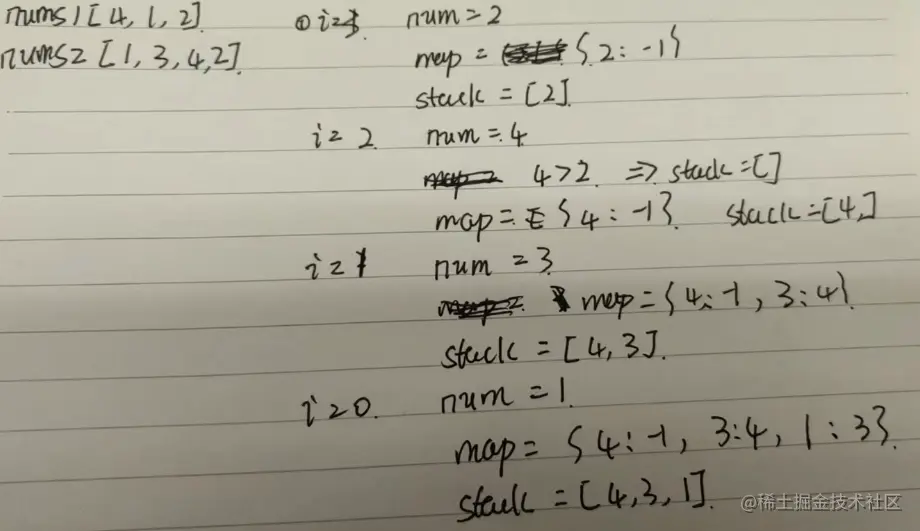 nums1 [4, 1, 2]
nums2 [1, 3, 4, 2]
① i=3 num = 2
map = { 2 : -1 }
stack = [2]
i = 2 num = 4
4 > 2 => stack = []
map = { 4 : -1 } stack = [4,]
i = 1 num = 3
map = { 4 : -1 , 3 : 4 }
stack = [ 4, 3 ].
i = 0. num = 1
map = { 4 : -1, 3:4, 1 : 3 }.
stack = [4, 3, 1]
@稀土掘金技术社区